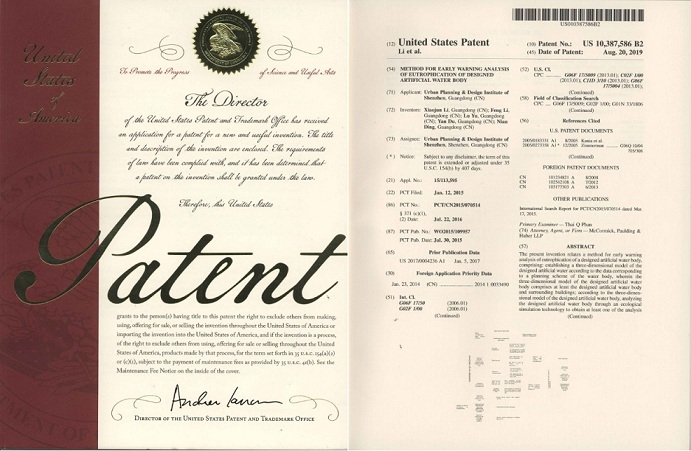 United
States
of
America
To Promote the Progress
of Science and Useful Arts
The Director
of the United States Patent and Trademark Office has received
an application for a patent for a new and useful invention. The title
and description of the invention are enclosed. The requirements
of law have been complied with, and it has been determined that
a patent on the invention shall be granted under the law.
Therefore, this United States
Patent
grants to the person(s) having title to this patent the right to exclude others from making,
using, offering for sale, or selling the invention throughout the United States of America or
importing the invention into the United States of America, and if the invention is a process,
of the right to exclude others from using, offering for sale or selling throughout the United
States of America, products made by that process, for the term set forth in 35 U.S.C. 154(a)(2)
or (c)(1), subject to the payment of maintenance fees as provided by 35 U.S.C. 41(b). See the
Maintenance Fee Notice on the inside of the cover.
DIRECTOR OF THE UNITED STATES PATENT AND TRADEMARK OFFICE
US010387586B2
(12) United States Patent
Li et al.
(10) Patent No.: US 10,387,586 B2
(45) Date of Patent: Aug. 20, 2019
(54) METHOD FOR EARLY WARNING ANALYSIS
OF EUTROPHICATION OF DESIGNED
ARTIFICIAL WATER BODY
(71) Applicant: Urban Planning & Design Institute of
Shenzhen, Guangdong (CN)
(72) Inventors: Xiaojun Li, Guangdong (CN); Feng Li,
Guangdong (CN); Lu Yu, Guangdong
(CN); Yan Du, Guangdong (CN); Nian
Ding, Guangdong (CN)
(73) Assignee: Urban Planning & Design Institute of
Shenzhen, Shenzhen, Guangdong (CN)
( * ) Notice: Subject to any disclaimer, the term of this
patent is extended or adjusted under 35
U.S.C. 154(b) by 407 days.
(21) Appl. No.: 15/113,595
(22) PCT Filed: Jan. 12, 2015
(86) PCT No.: PCT/CN2015/070514
§ 371 (c)(1),
(2) Date: Jul. 22, 2016
(87) PCT Pub. No.: WO2015/109957
PCT Pub. Date: Jul. 30, 2015
(65) Prior Publication Data
US 2017/0004236 A1 Jan. 5, 2017
(30) Foreign Application Priority Data
Jan. 23, 2014 (CN) 2014 1 0033490
(51) Int. Cl.
G06F 17/50 (2006.01)
G02F 1/00 (2006.01)
(Continued)
(52) U.S. Cl.
CPC G06F 17/5009 (2013.01); C02F 1/00
(2013.01);
(2013.01);
(Continued)
(58) Field of Classification Search
CPC G06F 17/5009; C02F 1/00; G01N 33/1806
(Continued)
(56) References Cited
U.S. PATENT DOCUMENTS
(Continued)
FOREIGN PATENT DOCUMENTS
(Continued)
OTHER PUBLICATIONS
International Search Report for PCT/CN2015/070514 dated Mar.
17, 2015.
Primary Examiner — Thai Q Phan
(74) Attorney, Agent, or Firm — McCormick, Paulding &
Huber LLP
(57) ABSTRACT
The present invention relates to a method for early warning
analysis of eutrophication of a designed artificial water body,
comprising: establishing a three-dimensional model of the
designed artificial water body according to the data corresponding
to a planning scheme of the water body, wherein the
three-dimensional model of the designed artificial water
body comprises at least the designed artificial water body
and surrounding buildings; according to the three-dimensional
model of the designed artificial water body, analyzing
the designed artificial water body through an ecological
simulation technology to obtain at least one of the analysis
(Continued)